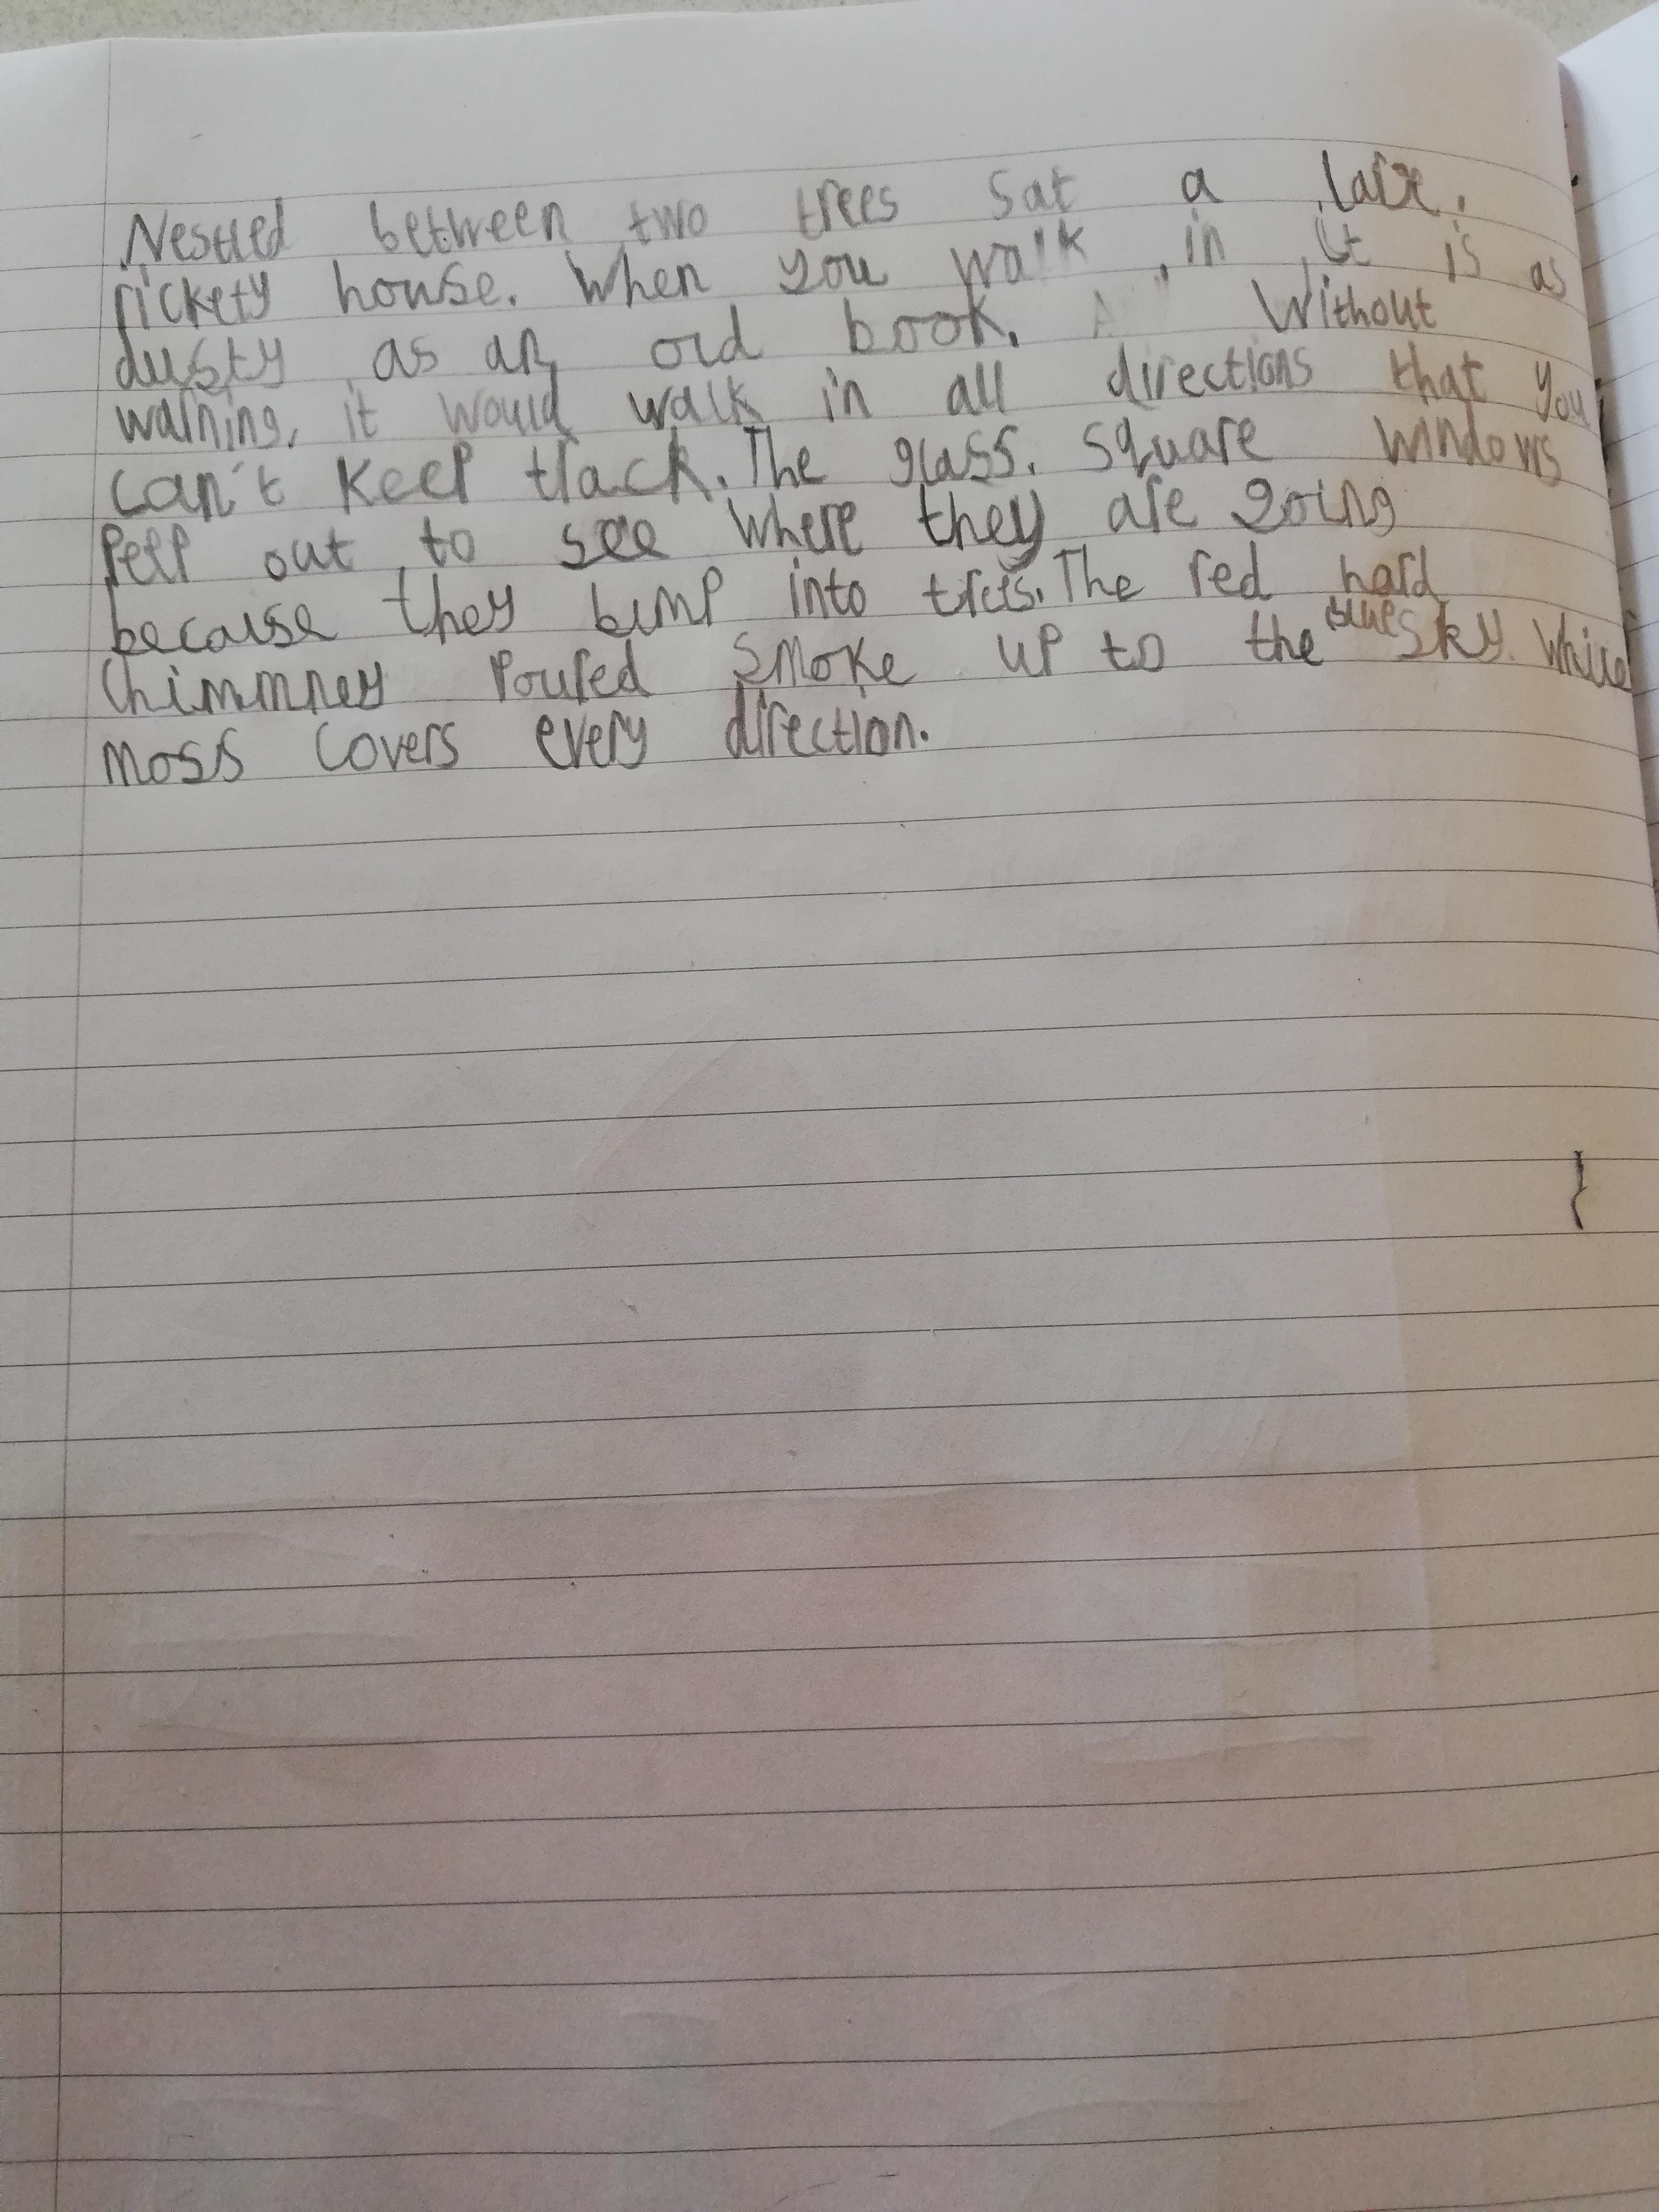 Nestled between two trees sat a large,
rickety house. When you walk in it is as
dusty as an old book. Without
warning, it would walk in all directions that you
can't keep track. The glass, square windows
peep out to see where they are going
because they bump into trees. The red hard
chimmney poured smoke up to the blue sky. While
moss covers every direction.